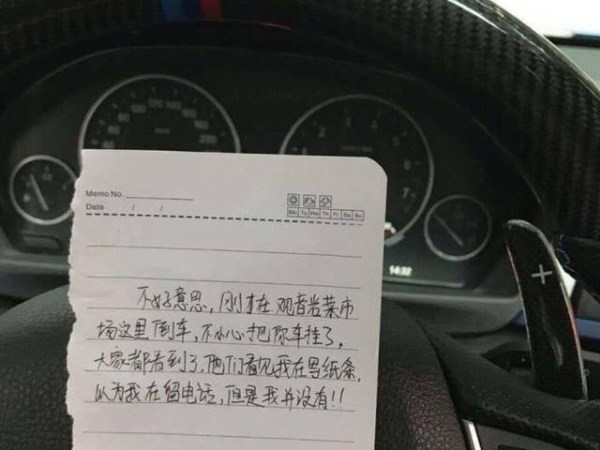 Memo No.
Date / /
Mo Tu We Th Fr Sa Su
不好意思，刚才在观音岩菜市
场这里倒车，不小心把你车挂了，
大家都看到了，他们看见我在写纸条，
以为我在留电话，但是我并没有!!
14:32
+